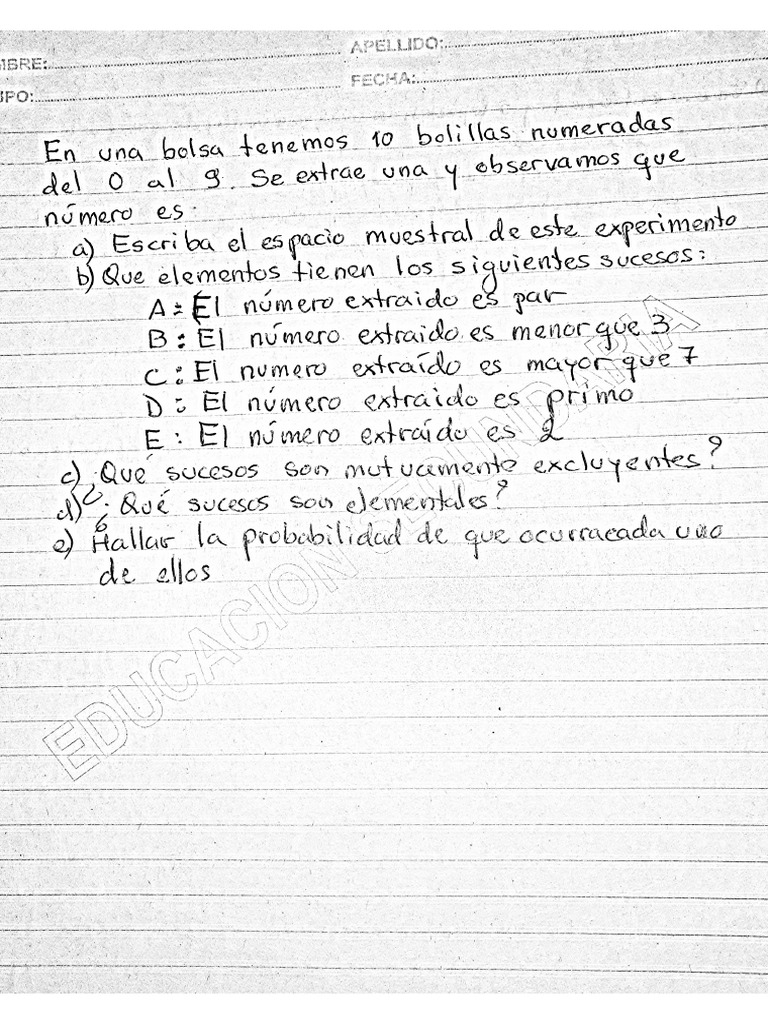 APELLIDO:
MBRE:
FECHA:
UPO:
En una bolsa tenemos 10 bolillas numeradas
del 0 al 9. Se extrae una y observamos que
número es.
a) Escriba el espacio muestral de este experimento
b) Que elementos tienen los siguientes sucesos:
A: El número extraido es par
B: El número extraido es menor que 3
C: El numero extraído es mayor que 7
D: El número extraido es primo
E: El número extraído es 2
c) ¿Qué sucesos son mutuamente excluyentes?
d) ¿Qué sucesos son elementales?
e) Hallar la probabilidad de que ocurra cada uno
de ellos
EDUCACION SECUNDARIA